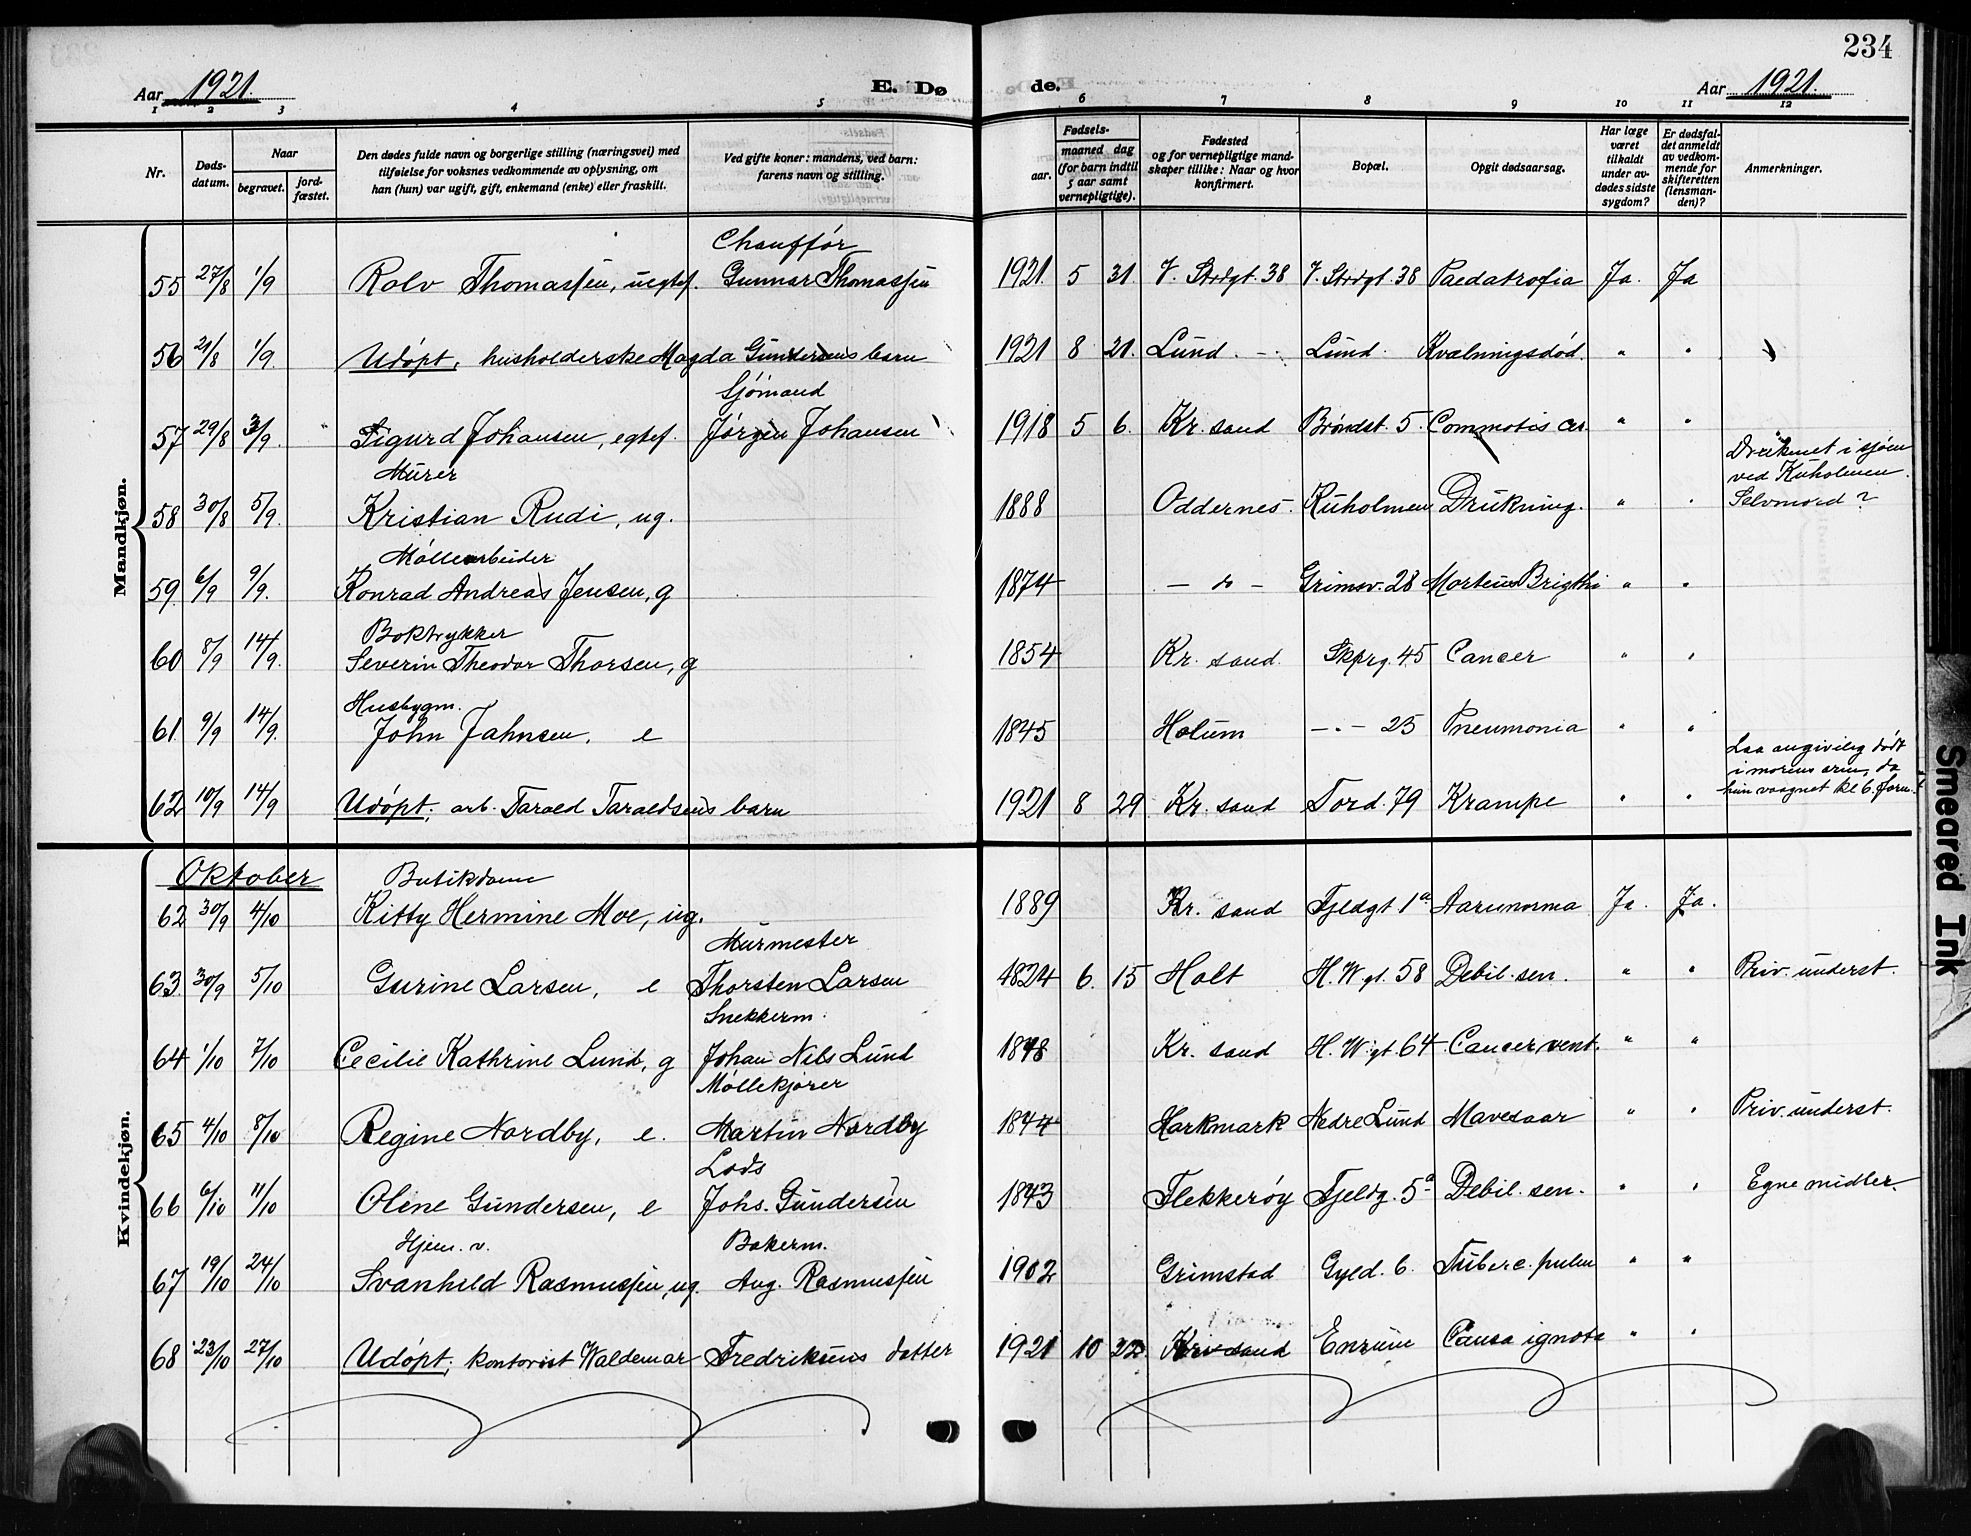 234
Aar 1921. E. Dø
de. Aar 1921.
1 2 3 4 5
6 7 8 9 10 11 12
Nr.
Døds-
datum.
Naar
begravet.
jord-
fæstet.
Den dødes fulde navn og borgerlige stilling (næringsvei) med
tilføielse for voksnes vedkommende av oplysning, om
han (hun) var ugift, gift, enkemand (enke) eller fraskilt.
Ved gifte koner: mandens, ved barn:
farens navn og stilling.
Fødsels-
aar.
maaned dag
(for barn indtil
5 aar samt
vernepligtige).
Fødested
og for vernepligtige mand-
skaper tillike: Naar og hvor
konfirmert.
Bopæl.
Opgit dødsaarsag.
Har læge
været
tilkaldt
under av-
dødes sidste
sygdom?
Er dødsfal-
det anmeldt
av vedkom-
mende for
skifteretten
(lensman-
den)?
Anmerkninger.
Mandkjøn.
Chauffør
55 27/8 1/9 Rolv Thomassen, uegtef. Gunnar Thomassen 1921. 5 31 V. Strdgt. 38 V. Strdgt. 38 Paedatrofia Ja. Ja
56 21/8 1/9. Udøpt, husholderske Magda Gundersens barn 1921 8 21. Lund. Lund. Kvælningsdød. " "
Sjømand
57 29/8 3/9. Sigurd Johansen, egtef. Jørgen Johansen 1918 5 6. Kr. sand Brøndst. 5. Commotis cer. " "
Murer
Druknet i sjøen
ved Kuholmen.
58 30/8 5/9. Kristian Rudi, ug. 1888 Oddernes. Kuholmen Drukning. " " Selvmord?
Møllearbeider
59. 6/9 9/9. Konrad Andreas Jensen, g 1874 — do — Grimsv. 28 Morteus Brigthi " "
Boktrykker
60 8/9 14/9. Severin Theodor Thorsen, g 1854 Kr. sand. Skprg. 45 Cancer " "
Husbygm.
61 9/9 14/9. John Jahnsen, e 1845 Holum —.— 25 Pneumonia " "
Laa angivelig dødt
i morens arm, da
hun vaagnet kl 6. form.
62 10/9 14/9 Udøpt, arb. Tarald Taraldsens barn 1921 8 29 Kr. sand Tord. 79 Krampe " "
Kvindekjøn.
Oktober
Butikdame
62 30/9 4/10 Kitty Hermine Moe, ug. 1889 Kr. sand Fjeldgt. 1a Ja. Ja.
Murmester
63 30/9 5/10 Gurine Larsen, e Thorsten Larsen 1824 6. 15 Holt H. W. gt. 58 Debil. sen. " " Priv. underst.
Snekkerm.
64 1/10 7/10 Cecilie Kathrine Lund, g Johan Nils Lund 1848 Kr. sand H. W. gt. 64 Cancer vent. " "
Møllekjører
65 4/10 8/10 Regine Nordby, e. Martin Nordby 1844 Harkmark Nedre Lund Mavesaar " " Priv. underst.
Lods
66 6/10 11/10 Olene Gundersen, e Johs. Gundersen 1843 Flekkerøy Fjeldg. 5a Debil. sen. " " Egne midler.
Hjem. v. Bakerm.
67 19/10 24/10 Svanhild Rasmussen, ug. Aug. Rasmussen 1902 Grimstad Gyld. 6. Tuberc. pulm " "
68 23/10 27/10 Udøpt, kontorist Waldemar Fredriksens datter 1921 10 22. Kr. sand Causa ignota " "
Smeared Ink